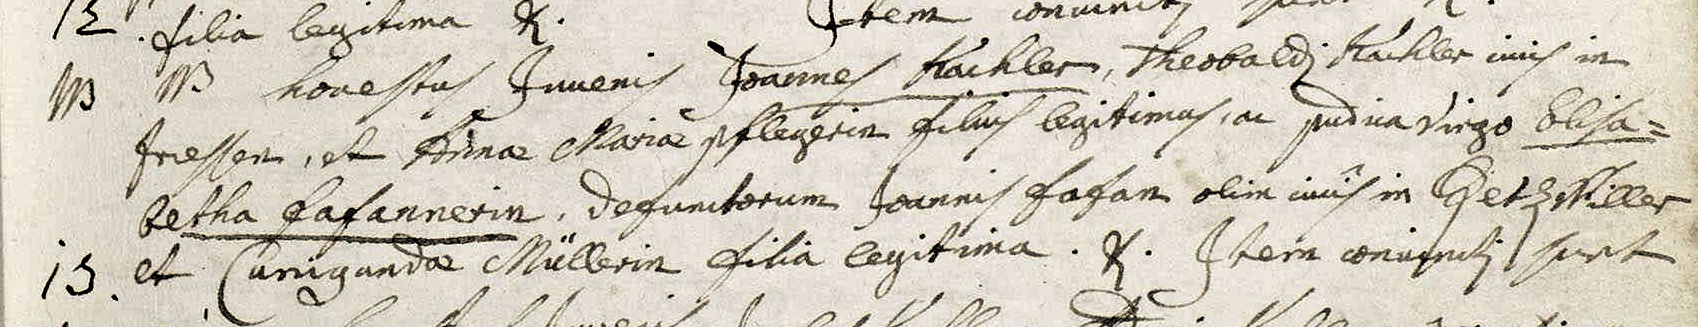 12. filia legitima &. Item coniuncti sunt &.
honestus Juvenis Joannes Kachler, Theobaldj Kachler civis in
friessen, et Annae Mariae pflegerin filius legitimus, ac pudica virgo Elisa=
betha fafannerin, defunctorum Joannis fafan olim civis in Getzwiller
13. et Cunigundae Müllerin filia legitima. &. Item coniuncti sunt